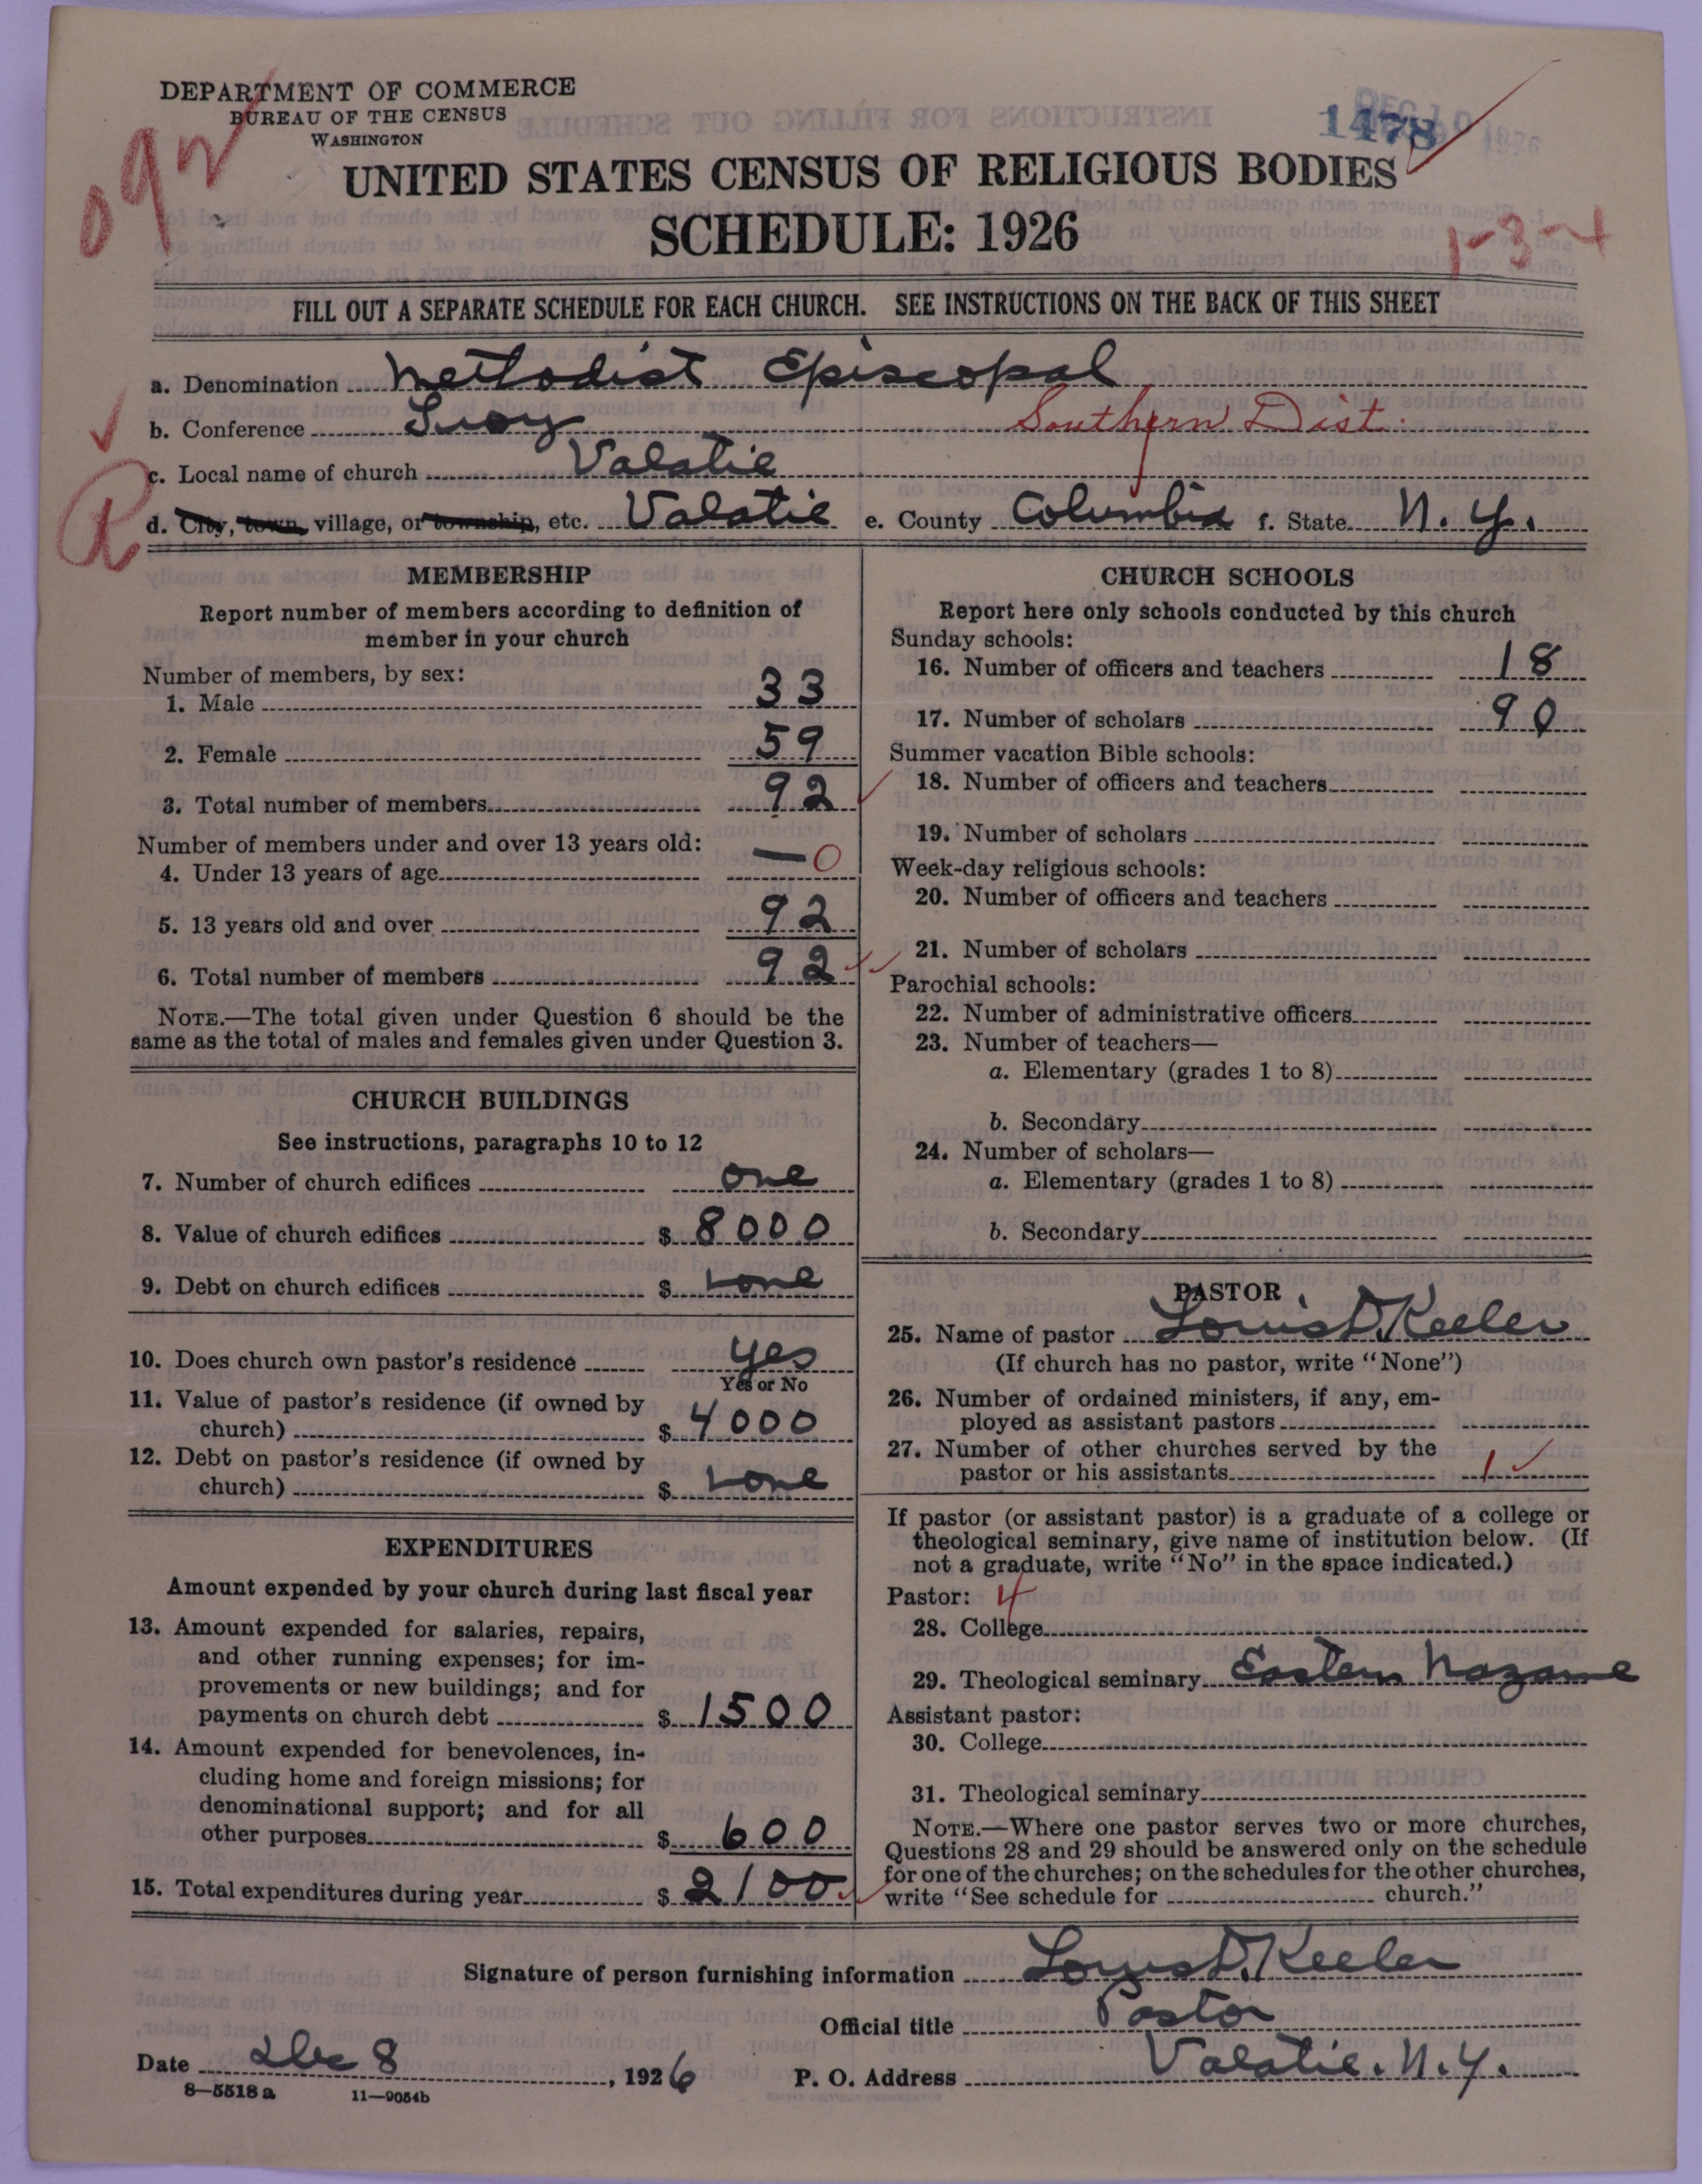 DEPARTMENT OF COMMERCE
BUREAU OF THE CENSUS
WASHINGTON
092
1478
UNITED STATES CENSUS OF RELIGIOUS BODIES
SCHEDULE: 1926
1-3-4
FILL OUT A SEPARATE SCHEDULE FOR EACH CHURCH. SEE INSTRUCTIONS ON THE BACK OF THIS SHEET
a. Denomination Methodist Episcopal
b. Conference Troy Southern Dist.
c. Local name of church Valatie
d. City, town, village, or township, etc. Valatie e. County Columbia f. State N. Y.
MEMBERSHIP
Report number of members according to definition of
member in your church
Number of members, by sex:
1. Male 33
2. Female 59
3. Total number of members 92
Number of members under and over 13 years old:
4. Under 13 years of age — 0
5. 13 years old and over 92
6. Total number of members 92
NOTE.—The total given under Question 6 should be the
same as the total of males and females given under Question 3.
CHURCH BUILDINGS
See instructions, paragraphs 10 to 12
7. Number of church edifices one
8. Value of church edifices $ 8000
9. Debt on church edifices $ none
10. Does church own pastor's residence yes
Yes or No
11. Value of pastor's residence (if owned by
church) $ 4000
12. Debt on pastor's residence (if owned by
church) $ none
EXPENDITURES
Amount expended by your church during last fiscal year
13. Amount expended for salaries, repairs,
and other running expenses; for im-
provements or new buildings; and for
payments on church debt $ 1500
14. Amount expended for benevolences, in-
cluding home and foreign missions; for
denominational support; and for all
other purposes $ 600
15. Total expenditures during year $ 2100
CHURCH SCHOOLS
Report here only schools conducted by this church
Sunday schools:
16. Number of officers and teachers 18
17. Number of scholars 90
Summer vacation Bible schools:
18. Number of officers and teachers
19. Number of scholars
Week-day religious schools:
20. Number of officers and teachers
21. Number of scholars
Parochial schools:
22. Number of administrative officers
23. Number of teachers—
a. Elementary (grades 1 to 8)
b. Secondary
24. Number of scholars—
a. Elementary (grades 1 to 8)
b. Secondary
PASTOR
25. Name of pastor Louis D. Keeler
(If church has no pastor, write "None")
26. Number of ordained ministers, if any, em-
ployed as assistant pastors
27. Number of other churches served by the
pastor or his assistants 1
If pastor (or assistant pastor) is a graduate of a college or
theological seminary, give name of institution below. (If
not a graduate, write "No" in the space indicated.)
Pastor: 4
28. College
29. Theological seminary Eastern
Assistant pastor:
30. College
31. Theological seminary
NOTE.—Where one pastor serves two or more churches,
Questions 28 and 29 should be answered only on the schedule
for one of the churches; on the schedules for the other churches,
write "See schedule for church."
Signature of person furnishing information Louis D. Keeler
Official title Pastor
Date Dec 8, 1926 P. O. Address Valatie. N. Y.
8—5518 a 11—9054b